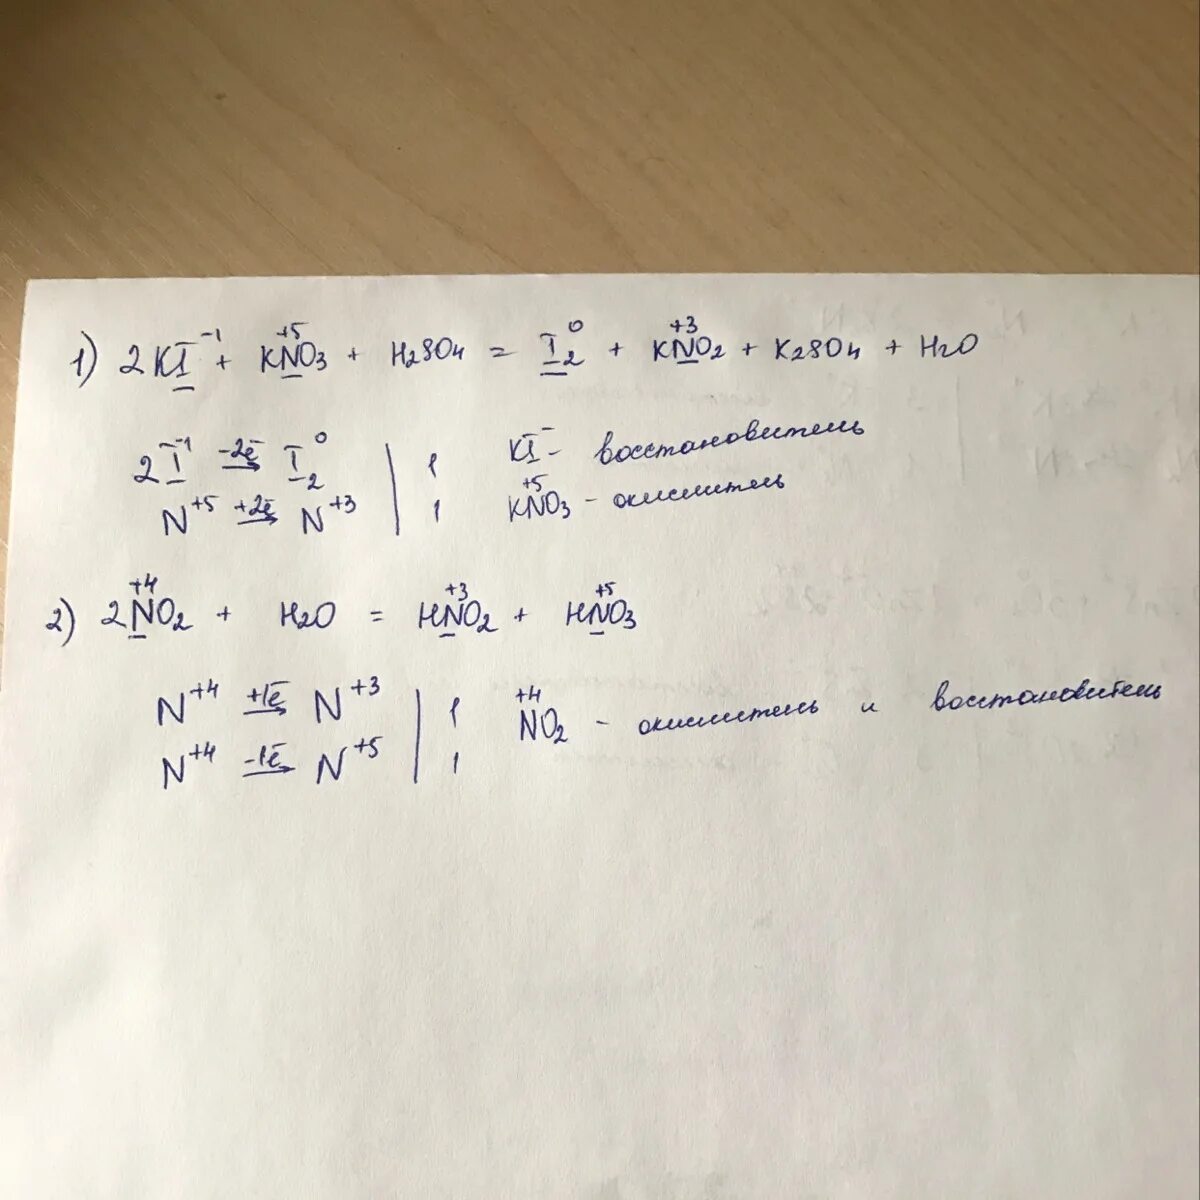 1) 2KI⁻¹ + KN⁺⁵O₃ + H₂SO₄ = I₂⁰ + KN⁺³O₂ + K₂SO₄ + H₂O
2I⁻¹ -2ē→ I₂⁰ | 1 KI⁻ - восстановитель
N⁺⁵ +2ē→ N⁺³ | 1 KN⁺⁵O₃ - окислитель
2) 2N⁺⁴O₂ + H₂O = HN⁺³O₂ + HN⁺⁵O₃
N⁺⁴ +1ē→ N⁺³ | 1 N⁺⁴O₂ - окислитель и восстановитель
N⁺⁴ -1ē→ N⁺⁵ | 1